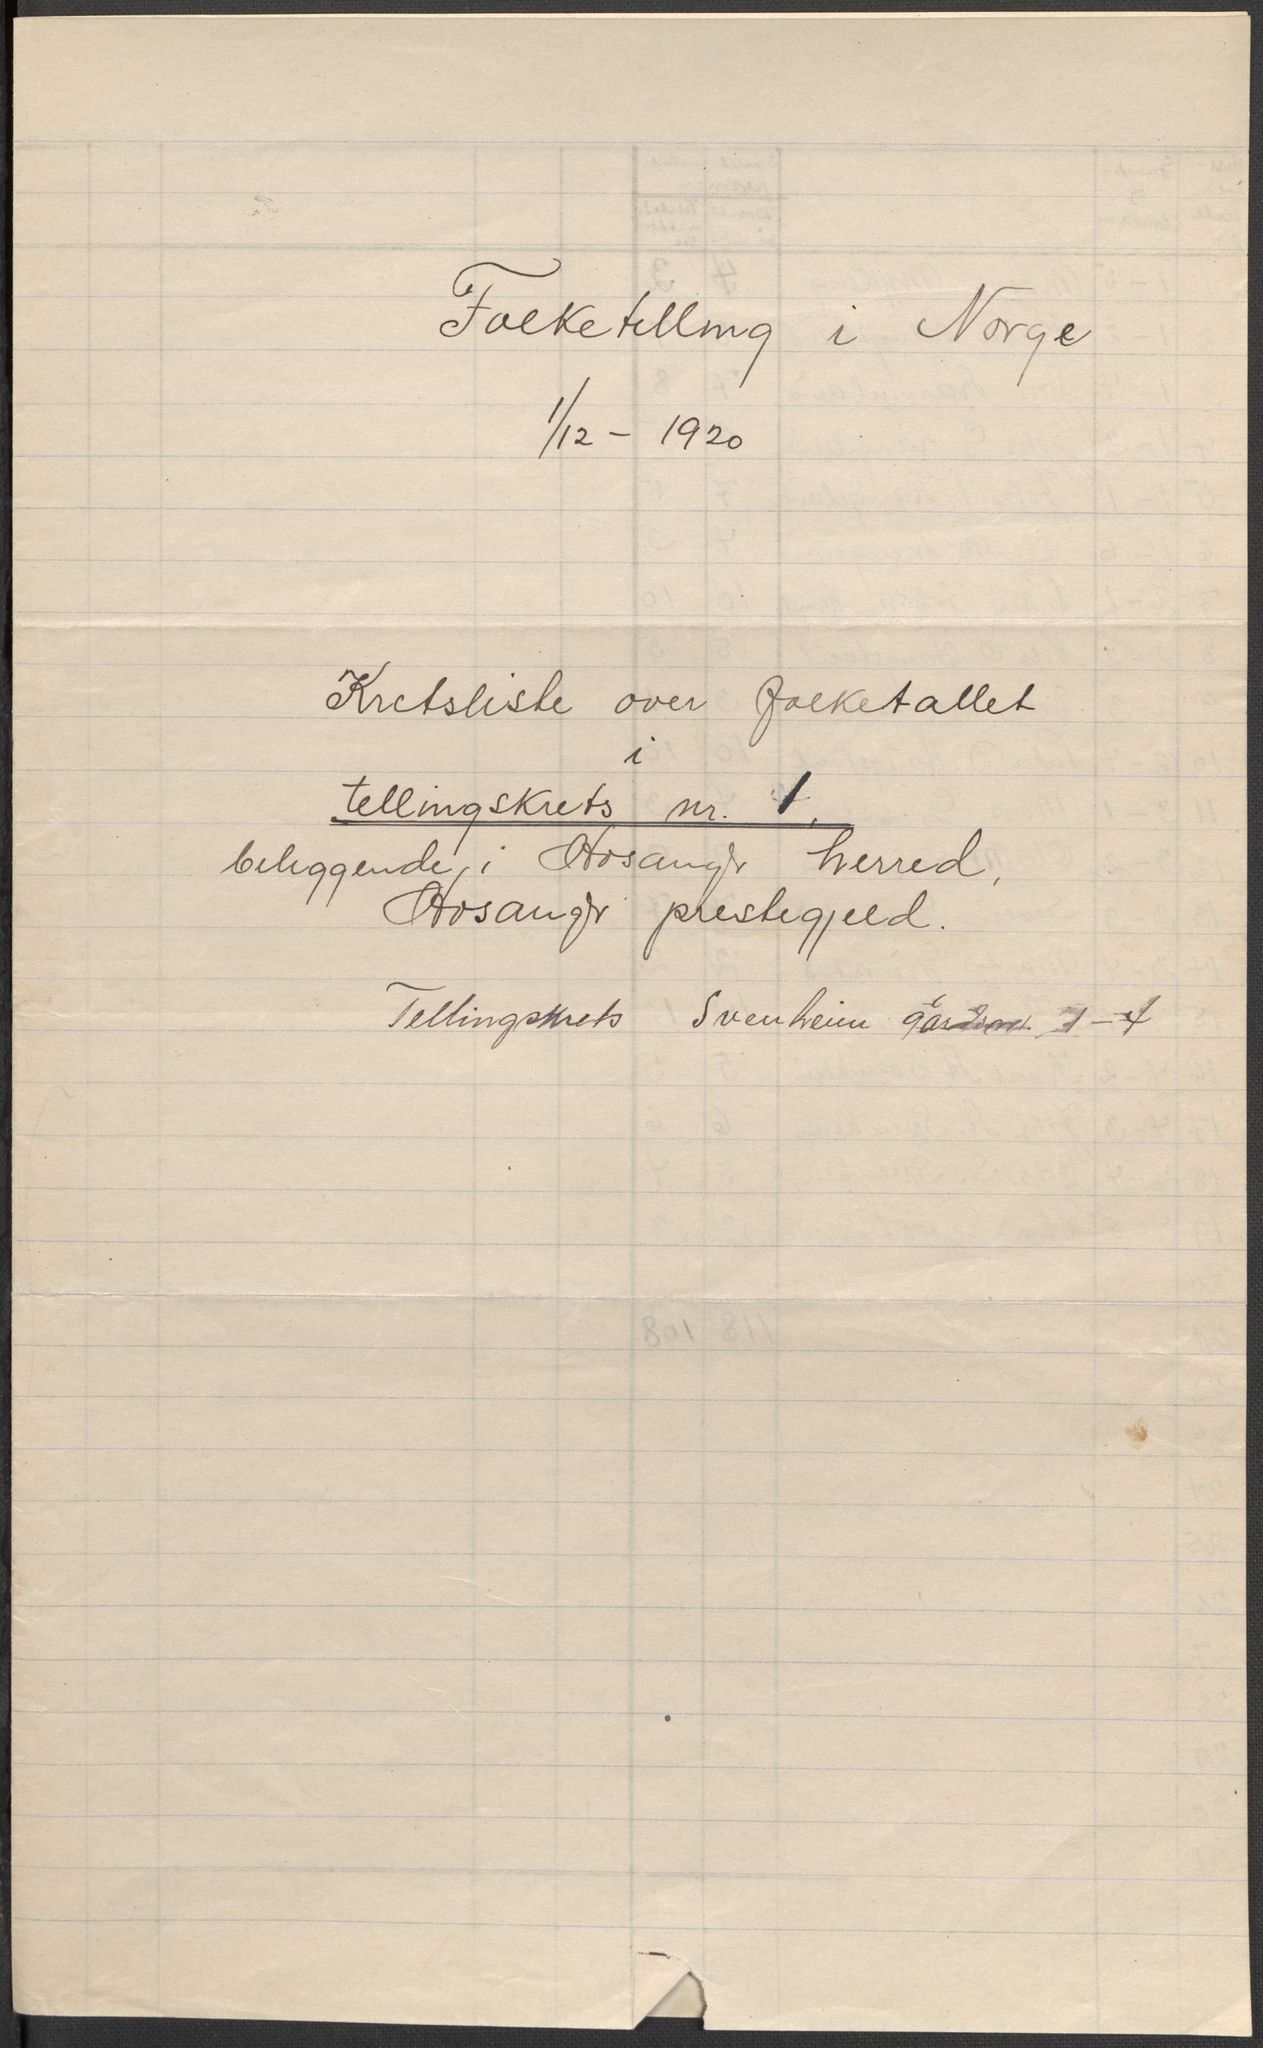 Folketelling i Norge
1/12 - 1920
Kretsliste over folketallet
i
tellingskrets nr. 1.
beliggende i Hosangr herred,
Hosangr prestegjeld.
Tellingskrets Svenheim gårdsnr. 1-4